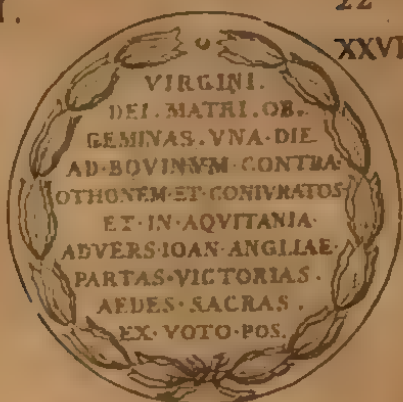 22
XXVI
VIRGINI.
DEI.MATRI.OB.
GEMINAS.VNA.DIE
AD·BOVINVM·CONTRA·
OTHONEM·ET·CONIVRATOS
ET·IN·AQVITANIA·
ADVERS·IOAN·ANGLIAE·
PARTAS·VICTORIAS.
AEDES·SACRAS.
EX·VOTO·POS.